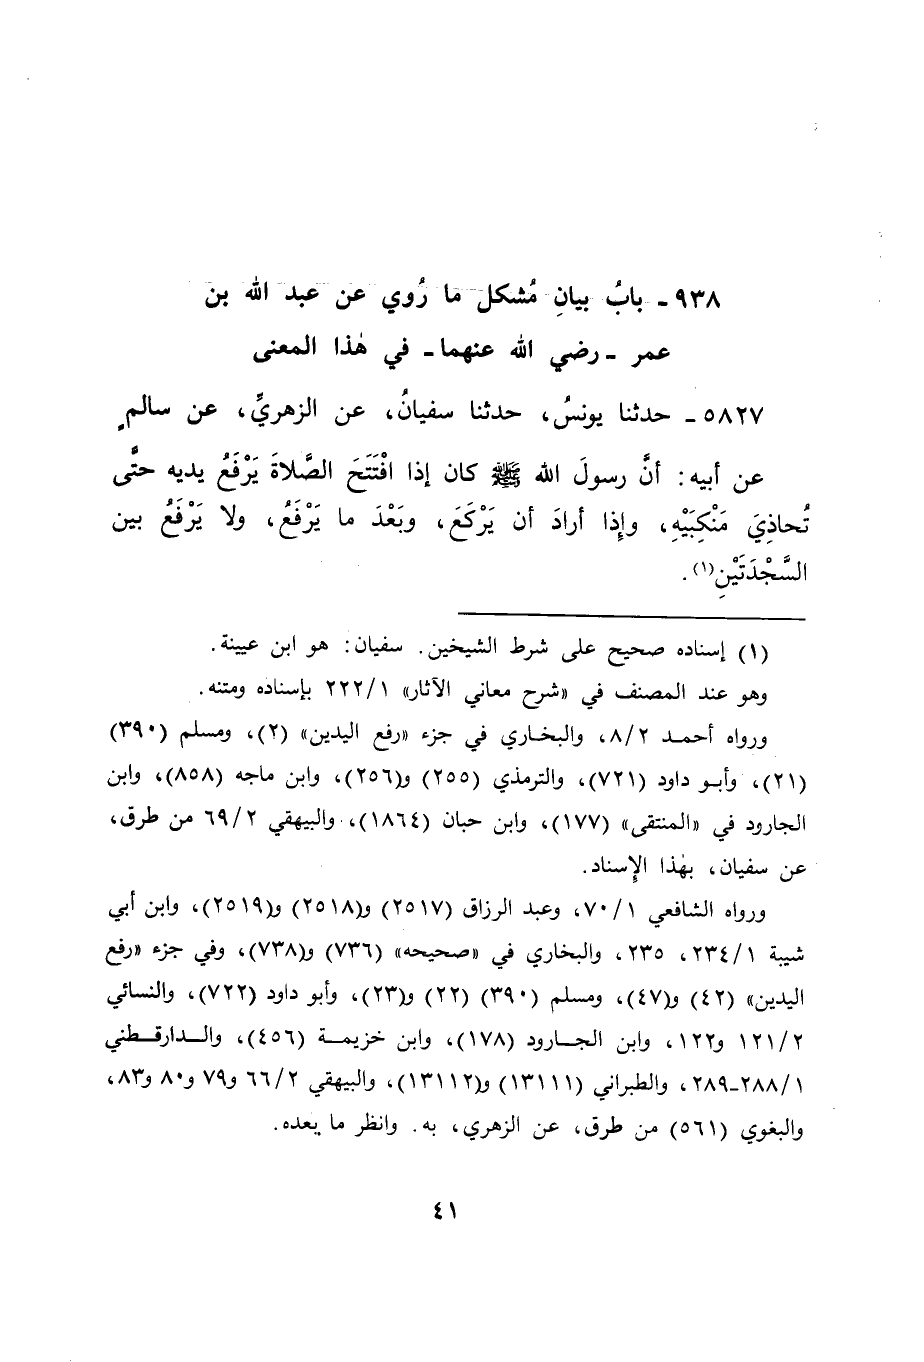 ٩٣٨ - بابُ بيانِ مُشكل ما رُوي عن عبد الله بن
عمر - رضي الله عنهما - في هٰذا المعنى
٥٨٢٧ - حدثنا يونسُ، حدثنا سفيانُ، عن الزهريِّ، عن سالمٍ
عن أبيه: أنَّ رسولَ الله ﷺ كان إذا افْتَتَحَ الصَّلاةَ يَرْفَعُ يديه حتَّى
تُحاذِيَ مَنْكِبَيْهِ، وإِذا أرادَ أن يَرْكَعَ، وبَعْدَ ما يَرْفَعُ، ولا يَرْفَعُ بين
السَّجْدَتَيْنِ(١).
(١) إسناده صحيح على شرط الشيخين. سفيان: هو ابن عيينة.
وهو عند المصنف في «شرح معاني الآثار» ٢٢٢/١ بإسناده ومتنه.
ورواه أحمد ٨/٢، والبخاري في جزء «رفع اليدين» (٢)، ومسلم (٣٩٠)
(٢١)، وأبو داود (٧٢١)، والترمذي (٢٥٥) و(٢٥٦)، وابن ماجه (٨٥٨)، وابن
الجارود في «المنتقى» (١٧٧)، وابن حبان (١٨٦٤)، والبيهقي ٦٩/٢ من طرق،
عن سفيان، بهٰذا الإِسناد.
ورواه الشافعي ٧٠/١، وعبد الرزاق (٢٥١٧) و(٢٥١٨) و(٢٥١٩)، وابن أبي
شيبة ٢٣٤/١، ٢٣٥، والبخاري في «صحيحه» (٧٣٦) و(٧٣٨)، وفي جزء «رفع
اليدين» (٤٢) و(٤٧)، ومسلم (٣٩٠) (٢٢) و(٢٣)، وأبو داود (٧٢٢)، والنسائي
١٢١/٢ و١٢٢، وابن الجارود (١٧٨)، وابن خزيمة (٤٥٦)، والدارقطني
٢٨٨/١-٢٨٩، والطبراني (١٣١١١) و(١٣١١٢)، والبيهقي ٦٦/٢ و٧٩ و٨٠ و٨٣،
والبغوي (٥٦١) من طرق، عن الزهري، به. وانظر ما بعده.
٤١